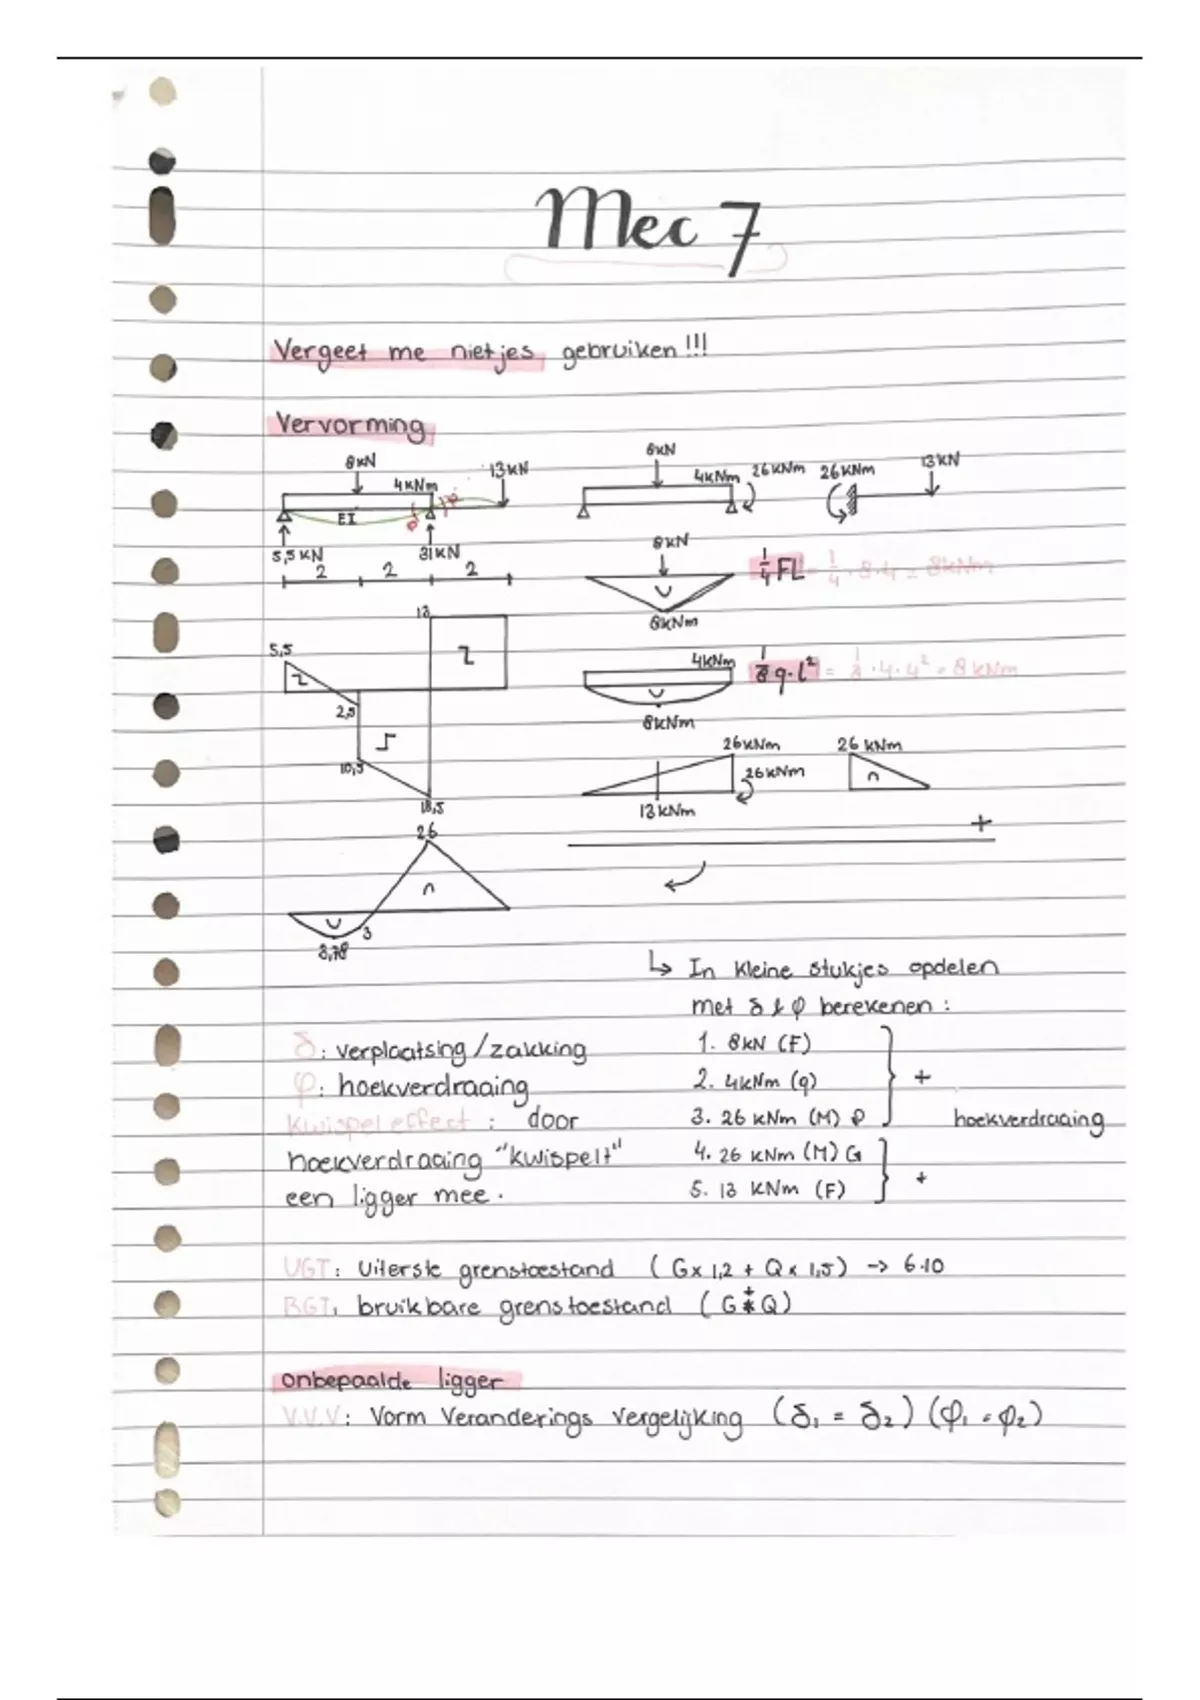 Mec 7
Vergeet me nietjes gebruiken!!!
Vervorming
8kN
4kNm
13kN
EI
5,5 kN
31kN
2 2 2
8kN
4kNm
26kNm
26kNm
13kN
8kN
1/4 FL = 1/4 · 8 · 4 = 8kNm
8kNm
4kNm
1/8 q·l² = 1/8 · 4 · 4² = 8 kNm
8kNm
26kNm
26kNm
13kNm
26 kNm
+
13
5,5
2,5
10,5
18,5
26
3
3,78
↳ In kleine stukjes opdelen
met δ & φ berekenen :
1. 8kN (F)
2. 4kNm (q)
3. 26 kNm (M) P
+
hoekverdraaing
4. 26 kNm (M) G
5. 13 kNm (F)
+
δ: verplaatsing/zakking
φ: hoekverdraaing
kwispeleffect : door
hoekverdraaing "kwispelt"
een ligger mee.
UGT: Uiterste grenstoestand ( G x 1,2 + Q x 1,5) -> 6.10
BGT: bruikbare grenstoestand ( G + Q)
onbepaalde ligger
V.V.V: Vorm Veranderings Vergelijking (δ₁ = δ₂) (φ₁ = φ₂)